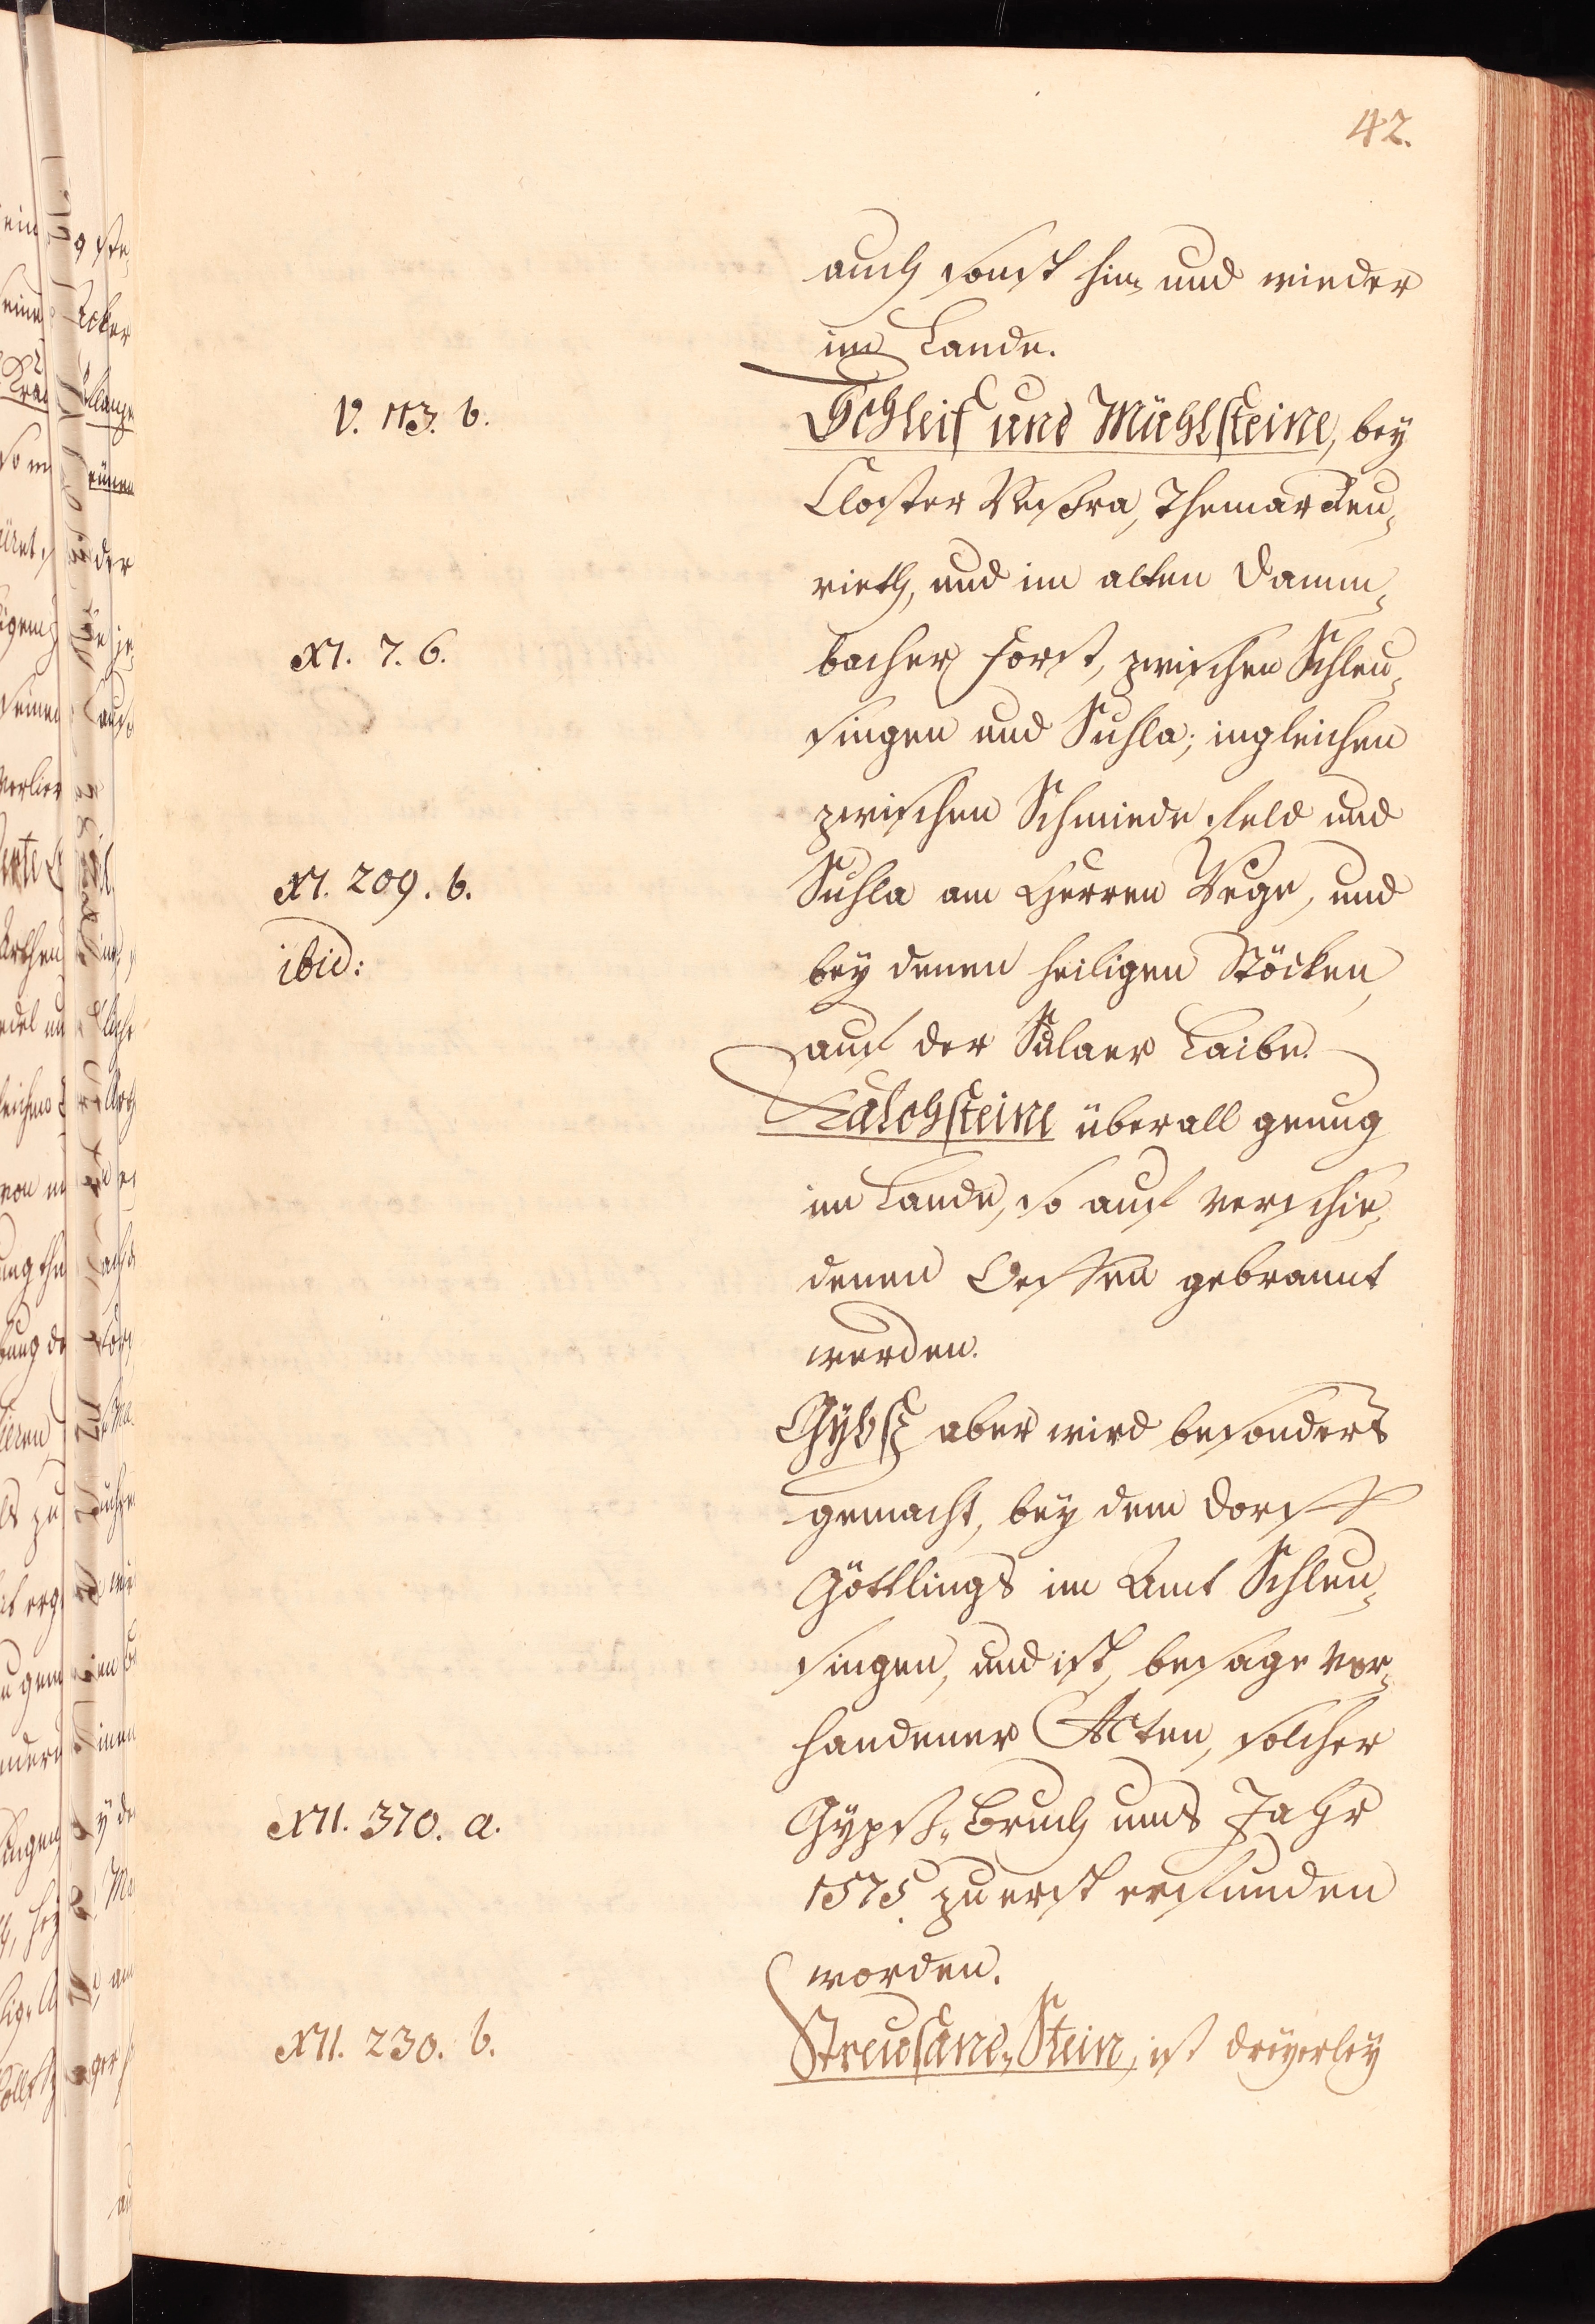 42.
auch sonst hin und wieder
im Lande.
V. 113. b.
Schleif und Mühlsteine, bey
Closter Veßra, Themar Heu„
rieth, und im alten Damm„
XI. 7. 6.
bacher Forst, zwischen Schleu„
singen und Suhla; ingleichen
zwischen Schmiede feld und
XI. 209. b.
Suhla am Herren Wege, und
ibid:
bey denen heiligen Stöcken,
auf der Sulaer Laibe.
Kalchsteine überall genug
im Lande, so auf verschie„
denen Oeffen gebrannt
werden.
Gybß aber wird besonders
gemacht, bey dem Dorff
Göttlings im Amt Schleu„
singen, und ist, besage vor„
handener Acten, solcher
XII. 370. a.
Gypß„Bruch ums Jahr
1575. zuerst erfunden
worden.
XII. 230. b.
Streusand„Stein, ist dreyerley